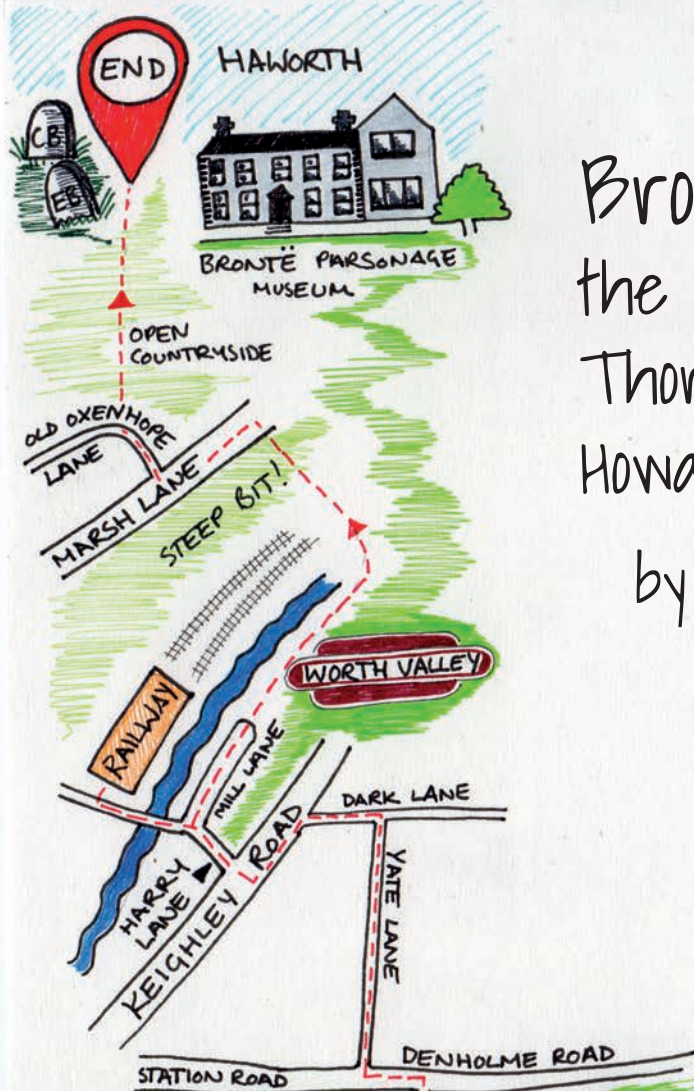 END
HAWORTH
CB
EB
BRONTË PARSONAGE
MUSEUM
OPEN
COUNTRYSIDE
OLD OXENHOPE
LANE
MARSH LANE
STEEP BIT!
RAILWAY
WORTH VALLEY
MILL LANE
HARRY
LANE
KEIGHLEY ROAD
DARK LANE
YATE LANE
DENHOLME ROAD
STATION ROAD
Bro
the
Thor
by